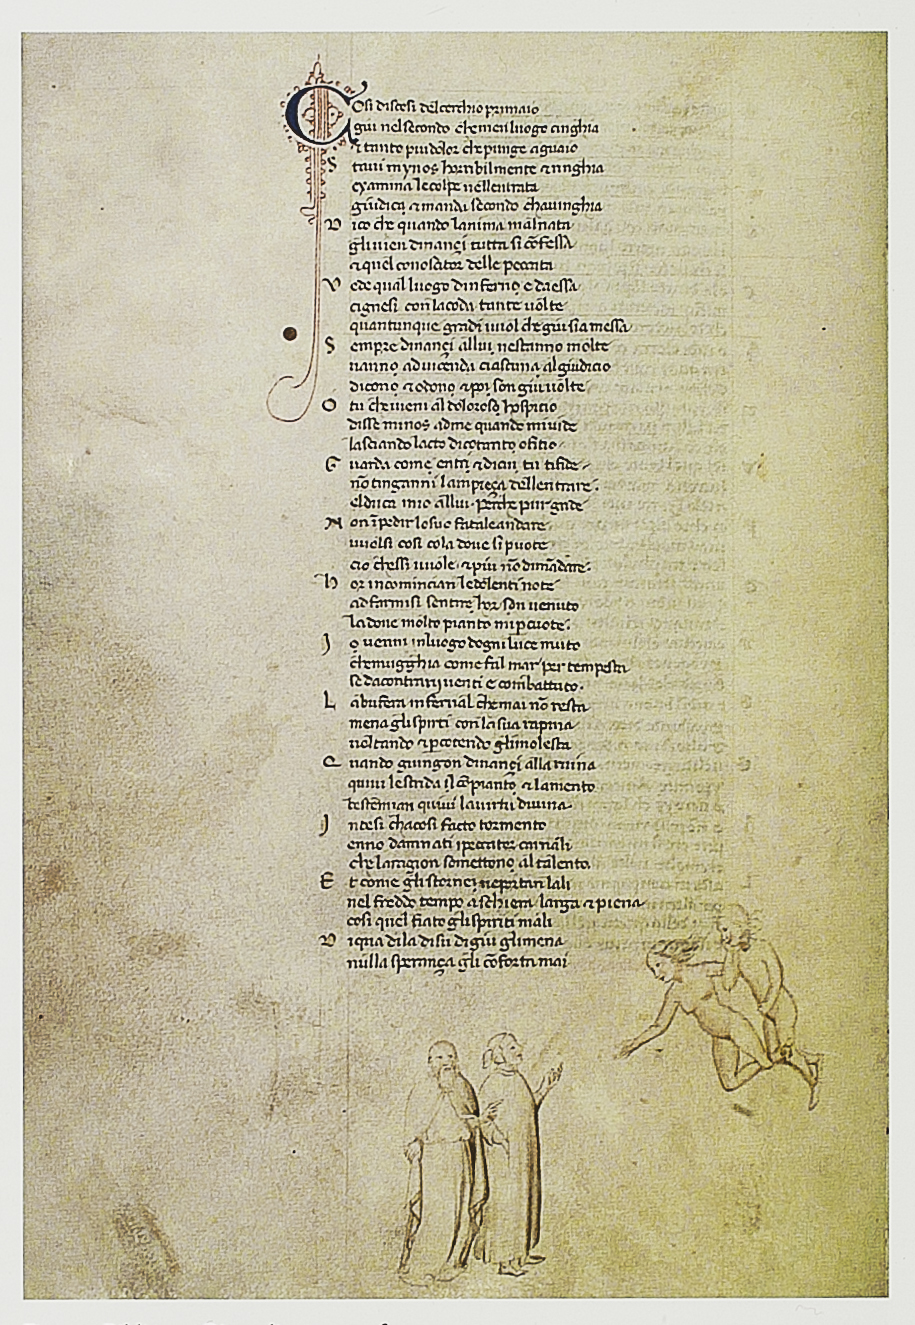 Cosi discesi del cerchio primaio
giu nel secondo che men luogo cinghia
& tanto piu dolor che punge a guaio
Stavi mynos horribilmente & ringhia
examina le colpe nellentrata
giudica & manda secondo chavinghia
Dico che quando lanima malnata
gli vien dinançi tutta si cõfessa
& quel conoscitor delle peccata
Vede qual luogo dinferno e daessa
cignesi con la coda tante volte
quantunque gradi vuol che giu sia messa
Sempre dinançi allui nestanno molte
vanno a vicenda ciascuna al giudicio
dicono & odono & poi son giu volte
O tu che vieni al doloroso hospicio
disse minos a me quando mi vide
lasciando lacto di cotanto officio
Guarda come entri & di cui tu ti fide
nõ tinganni lampieça dellentrare.
el duca mio allui. perche pur gride
Non ĩpedir lo suo fatale andare
vuolsi cosi cola dove si puote
cio chessi vuole. & piu nõ dimãdare.
Hor incomincian le dolenti note
ad farmisi sentire hor son venuto
la dove molto pianto mi pcuote.
Jo venni in luogo dogni luce muto
che mugghia come fa mar per tempesta
se da contrarij venti e combattuto.
La bufera infernal che mai nõ resta
mena gli spirti con la sua rapina
voltando & pcotendo gli molesta
Quando giungon dinançi alla ruina
quivi le strida il cõpianto & lamento
bestẽmian quivi la virtu divina
Jntesi cha cosi facto tormento
enno dannati i peccator carnali
che la ragion somettono al talento.
Et come gli stornei ne portan lali
nel freddo tempo a schiera larga & piena
cosi quel fiato gli spiriti mali
Di qua di la di su di giu gli mena
nulla sperança gli cõforta mai